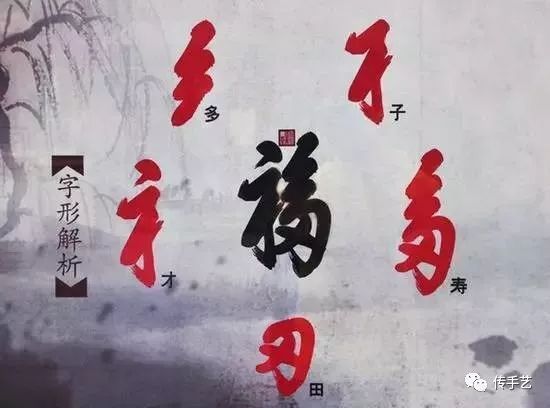 多
子
福
字形解析
才
寿
田
传手艺